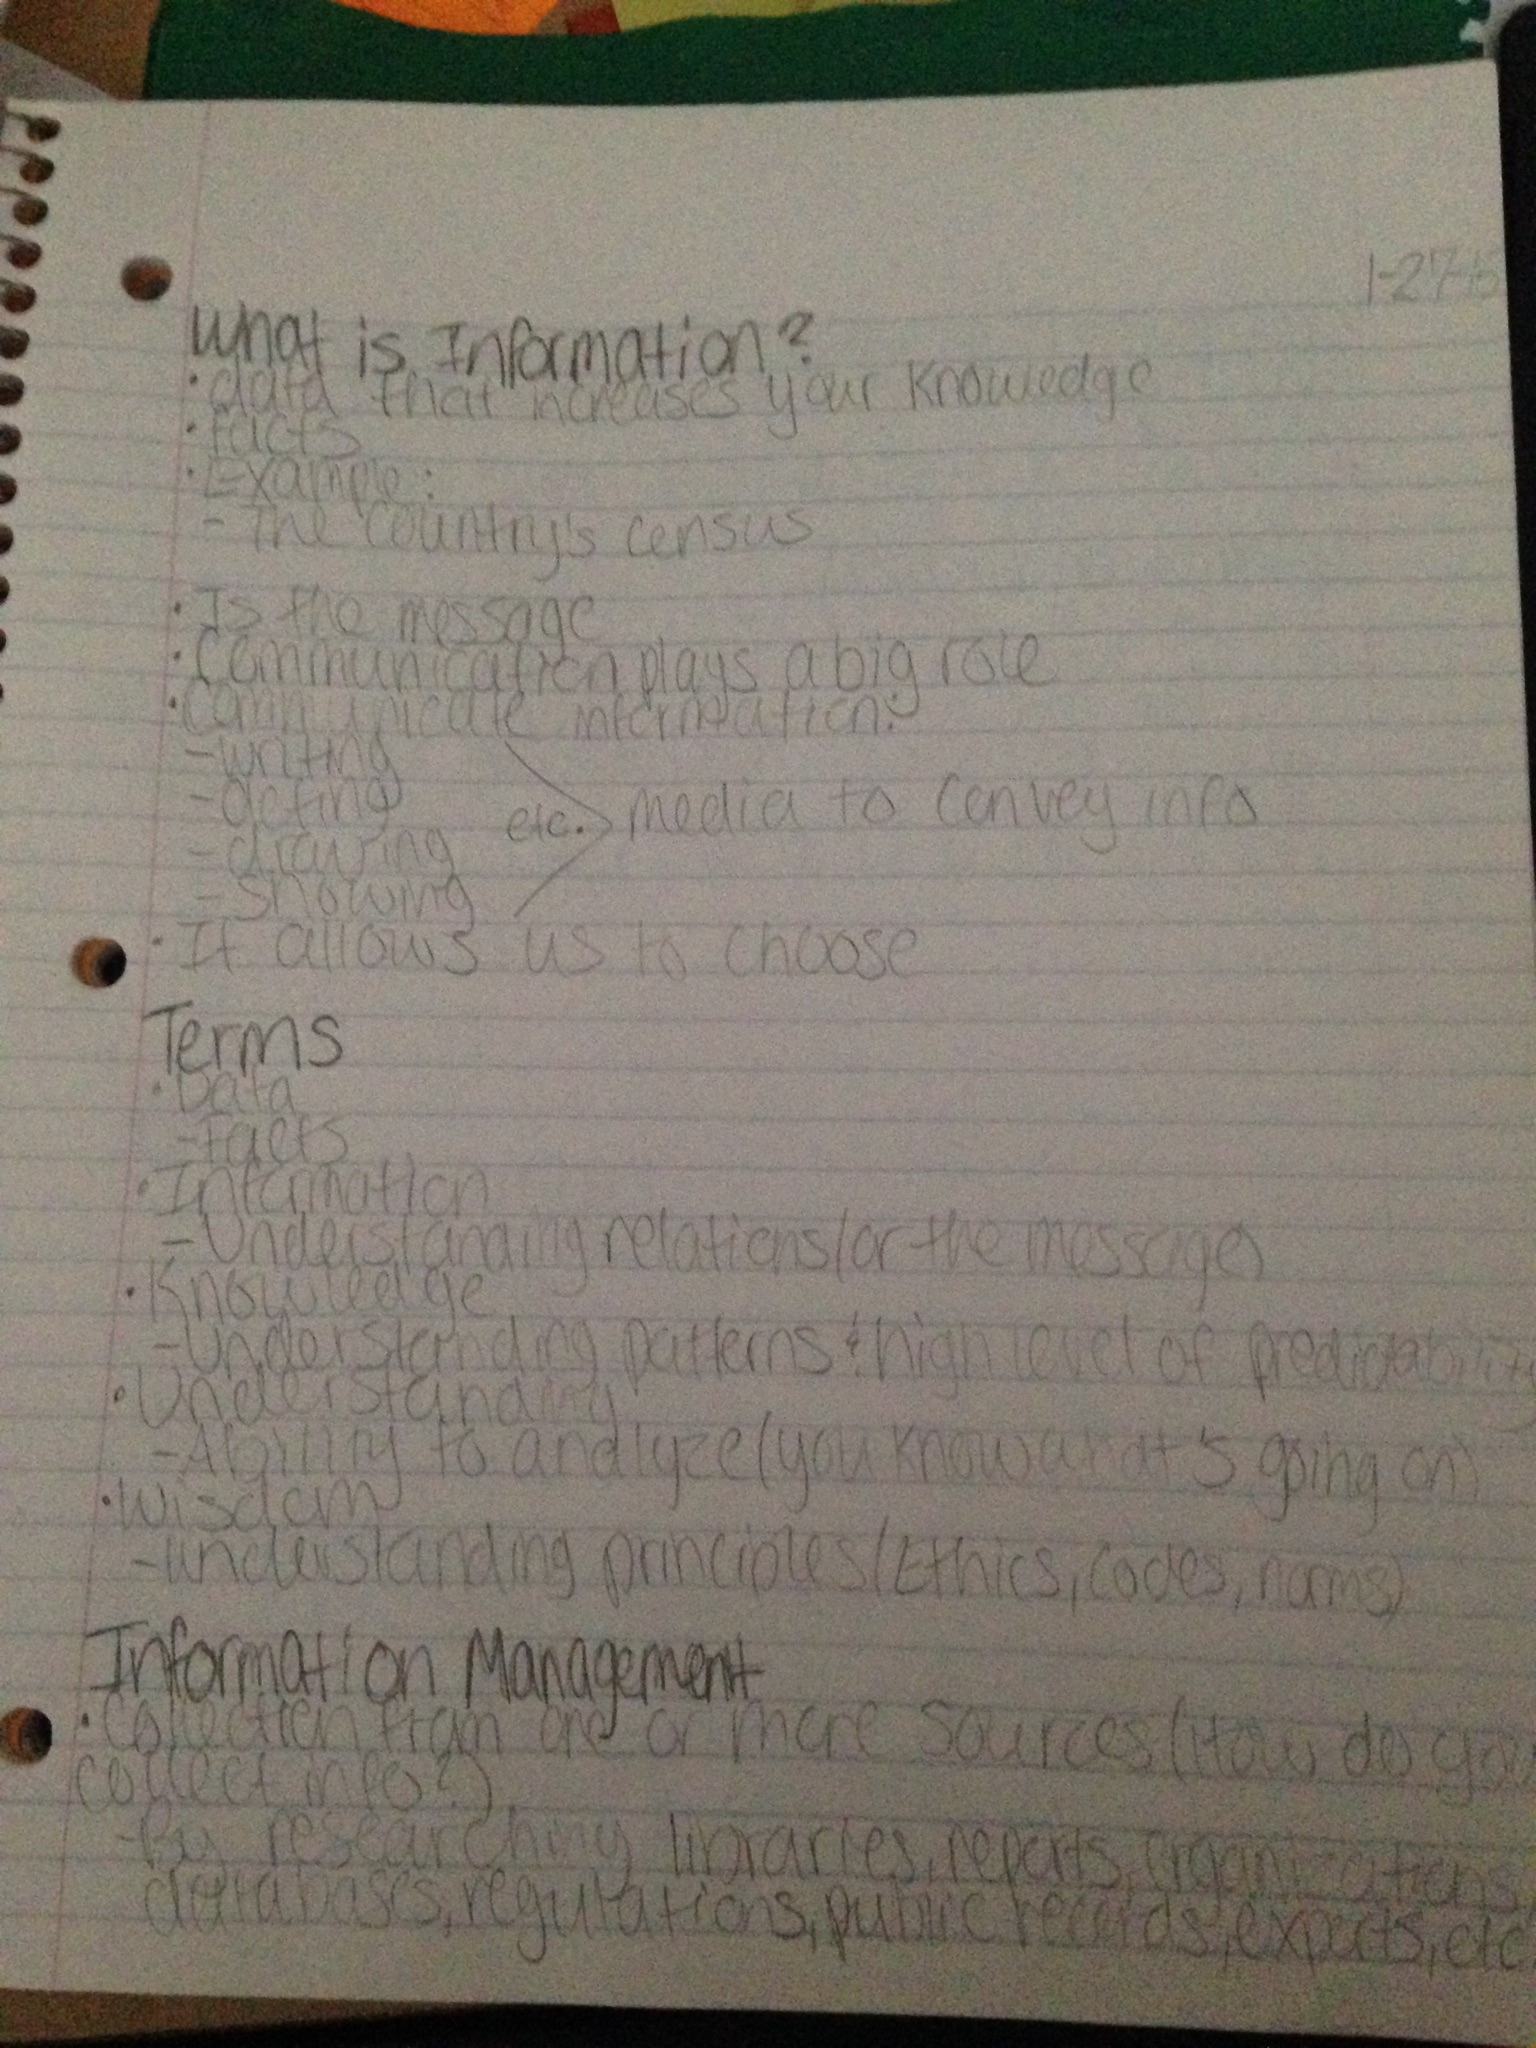 1-27-15
What is Information?
• data that increases your knowledge
• Facts
• Example:
- The country's census
• Is the message
• Communication plays a big role
• Communicate information:
- writing
- acting
etc. > media to convey info
- drawing
- showing
• It allows us to choose
Terms
• Data
- Facts
• Information
- Understanding relations (or the message)
• Knowledge
- Understanding patterns & high level of predictability
• Understanding
- Ability to analyze (you know what's going on)
• Wisdom
- understanding principles (Ethics, codes, norms)
Information Management
• Collection from one or more sources (How do you
collect info?)
- By researching libraries, reports, organizations,
databases, regulations, public records, experts, etc